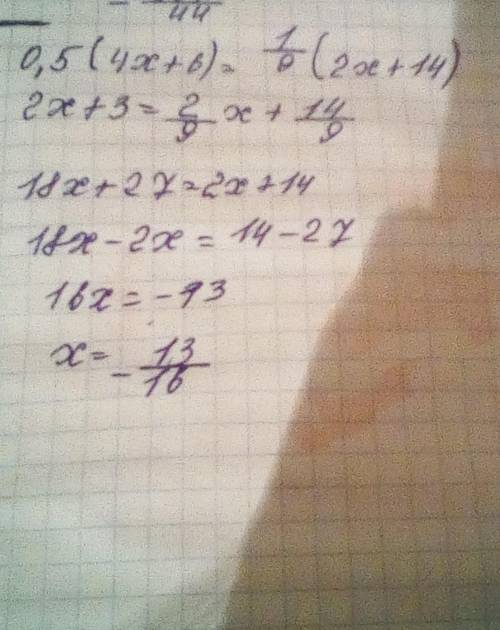 44
0,5(4x+6)= 1/9 (2x+14)
2x+3= 2/9 x+ 14/9
18x+27=2x+14
18x-2x=14-27
16x=-13
x=- 13/16